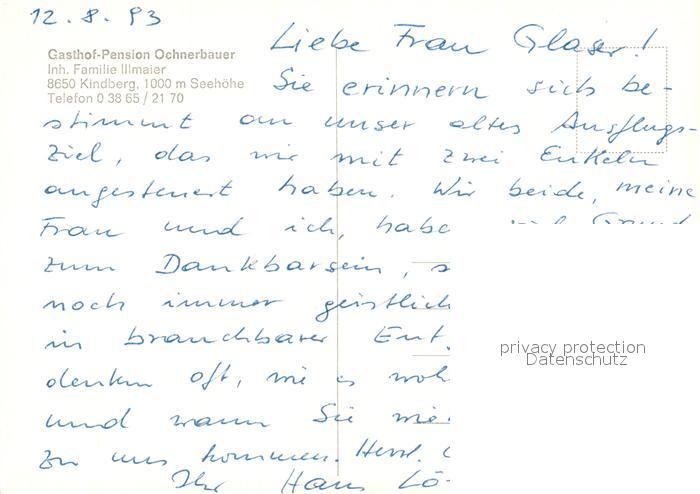 12. 8. 93
Gasthof-Pension Ochnerbauer
Inh. Familie Illmaier
8650 Kindberg, 1000 m Seehöhe
Telefon 0 38 65 / 21 70
Liebe Frau Glaser!
Sie erinnern sich be-
stimmt an unser altes Ausflugs-
ziel, das wir mit zwei Enkeln
angesteuert haben. Wir beide, meine
Frau und ich, habe Grund
zum Dankbarsein, s
noch immer geistlich
in brauchbarer
denken oft, wie es woh
und wann Sie wie
zu uns kommen. Herzl.
Ihr Hans Lö-
privacy protection
Datenschutz